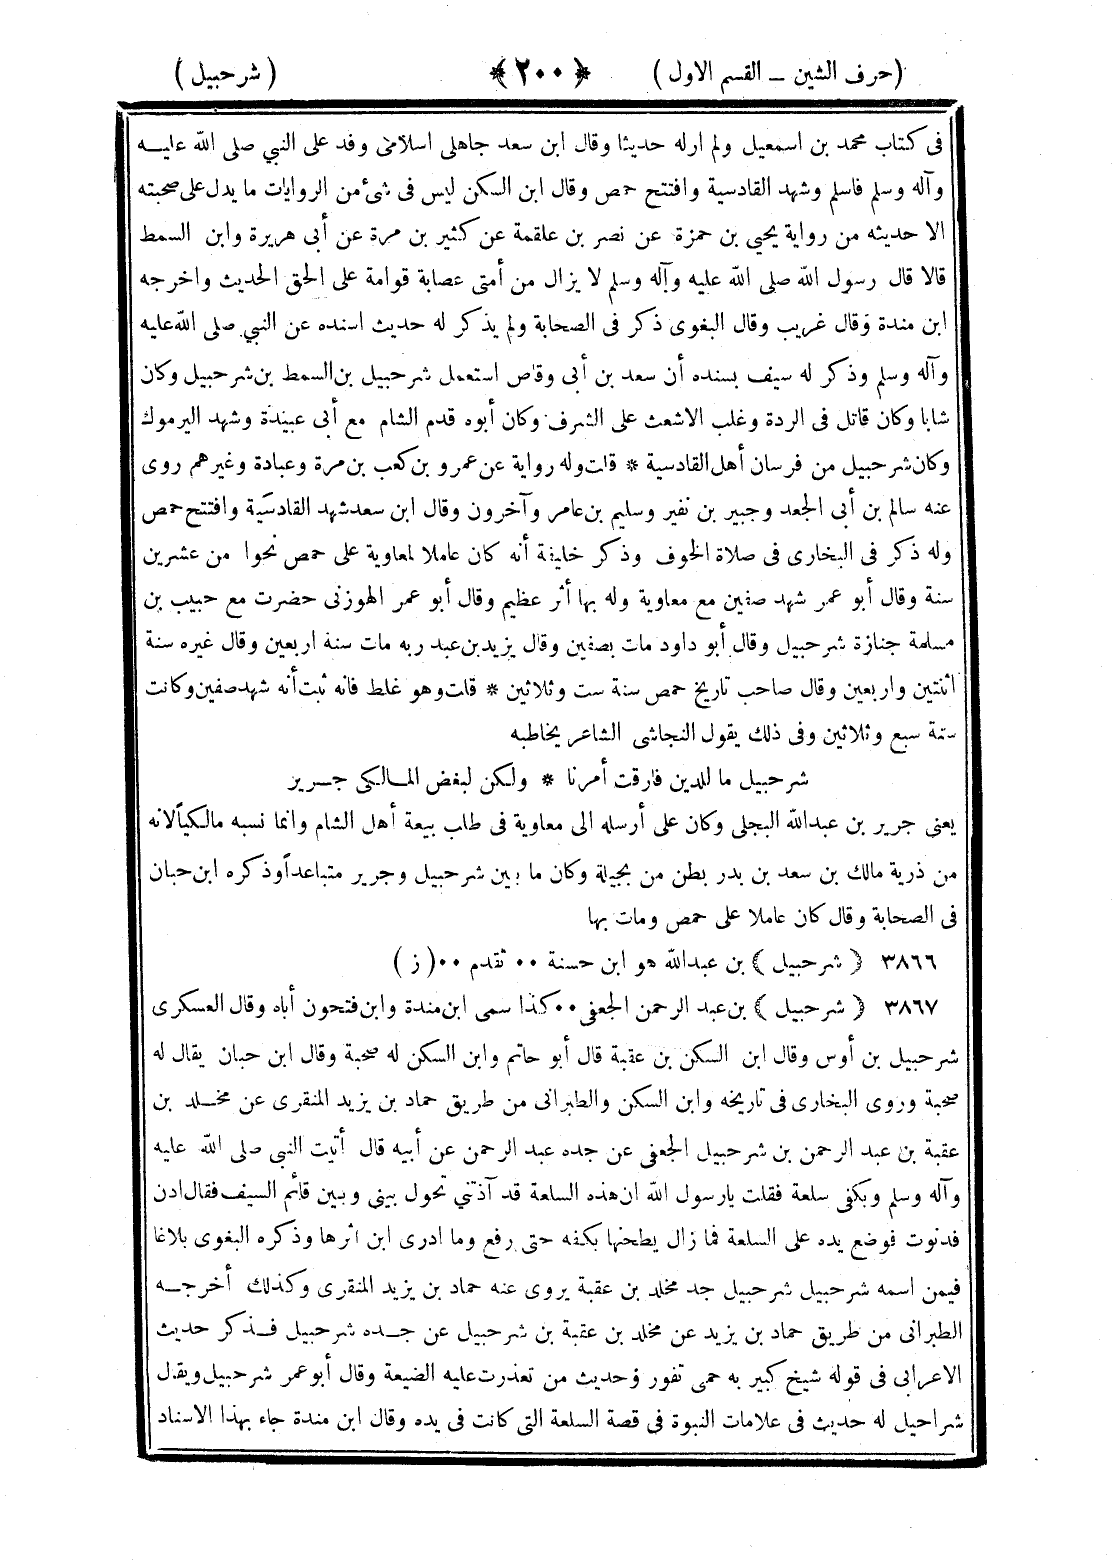 (حرف الشين ــ القسم الاول) ﴿ ٢٠٠ ﴾ (شرحبيل)
فى كتاب محمد بن اسمعيل ولم ارله حديثا وقال ابن سعد جاهلى اسلامى وفد على النبي صلى الله عليه
وآله وسلم فاسلم وشهد القادسية وافتتح حمص وقال ابن السكن ليس فى شئ من الروايات ما يدل على صحبته
الا حديثه من رواية يحيي بن حمزة عن نصر بن علقمة عن كثير بن مرة عن أبى هريرة وابن السمط
قالا قال رسول الله صلى الله عليه وآله وسلم لا يزال من أمتى عصابة قوامة على الحق الحديث واخرجه
ابن مندة وقال غريب وقال البغوى ذكر فى الصحابة ولم يذكر له حديث اسنده عن النبي صلى الله عليه
وآله وسلم وذكر له سيف بسنده أن سعد بن أبى وقاص استعمل شرحبيل بن السمط بن شرحبيل وكان
شابا وكان قاتل فى الردة وغلب الاشعث على الشرف وكان أبوه قدم الشام مع أبى عبيدة وشهد اليرموك
وكان شرحبيل من فرسان أهل القادسية * قلت وله رواية عن عمرو بن كعب بن مرة وعبادة وغيرهم روى
عنه سالم بن أبى الجعد وجبير بن نفير وسليم بن عامر وآخرون وقال ابن سعد شهد القادسية وافتتح حمص
وله ذكر فى البخارى فى صلاة الخوف وذكر خليفة أنه كان عاملا لمعاوية على حمص نحوا من عشرين
سنة وقال أبو عمر شهد صفين مع معاوية وله بها أثر عظيم وقال أبو عمر الهوزنى حضرت مع حبيب بن
مسلمة جنازة شرحبيل وقال أبو داود مات بصفين وقال يزيد بن عبد ربه مات سنة اربعين وقال غيره سنة
اثنتين واربعين وقال صاحب تاريخ حمص سنة ست وثلاثين * قلت وهو غلط فانه ثبت أنه شهد صفين وكانت
سنة سبع وثلاثين وفى ذلك يقول النجاشى الشاعر يخاطبه
شرحبيل ما للدين فارقت أمرنا * ولكن لبغض المالكى جرير
يعنى جرير بن عبدالله البجلى وكان على أرسله الى معاوية فى طلب بيعة أهل الشام وانما نسبه مالكياً لانه
من ذرية مالك بن سعد بن بدر بطن من بجيلة وكان ما بين شرحبيل وجرير متباعداً وذكره ابن حبان
فى الصحابة وقال كان عاملا على حمص ومات بها
٣٨٦٦ ﴿ شرحبيل ﴾ بن عبدالله هو ابن حسنة ٠٠ تقدم ٠٠ (ز)
٣٨٦٧ ﴿ شرحبيل ﴾ بن عبد الرحمن الجعفى ٠٠ كذا سمى ابن مندة وابن فتحون أباه وقال العسكرى
شرحبيل بن أوس وقال ابن السكن بن عقبة قال أبو حاتم وابن السكن له صحبة وقال ابن حبان يقال له
صحبة وروى البخارى فى تاريخه وابن السكن والطبرانى من طريق حماد بن يزيد المنقرى عن مخلد بن
عقبة بن عبد الرحمن بن شرحبيل الجعفى عن جده عبد الرحمن عن أبيه قال أتيت النبي صلى الله عليه
وآله وسلم وبكفى سلعة فقلت يارسول الله ان هذه السلعة قد آذتني تحول بينى وبين قائم السيف فقال ادن
فدنوت فوضع يده على السلعة فما زال يطحنها بكفه حتى رفع وما ادرى ابن اثرها وذكره البغوى بلاغا
فيمن اسمه شرحبيل شرحبيل جد مخلد بن عقبة يروى عنه حماد بن يزيد المنقرى وكذلك أخرجه
الطبرانى من طريق حماد بن يزيد عن مخلد بن عقبة بن شرحبيل عن جده شرحبيل فذكر حديث
الاعرابى فى قوله شيخ كبير به حمى تفور وحديث من تعذرت عليه الضيعة وقال أبو عمر شرحبيل ويقال
شراحيل له حديث فى علامات النبوة فى قصة السلعة التى كانت فى يده وقال ابن مندة جاء بهذا الاسناد